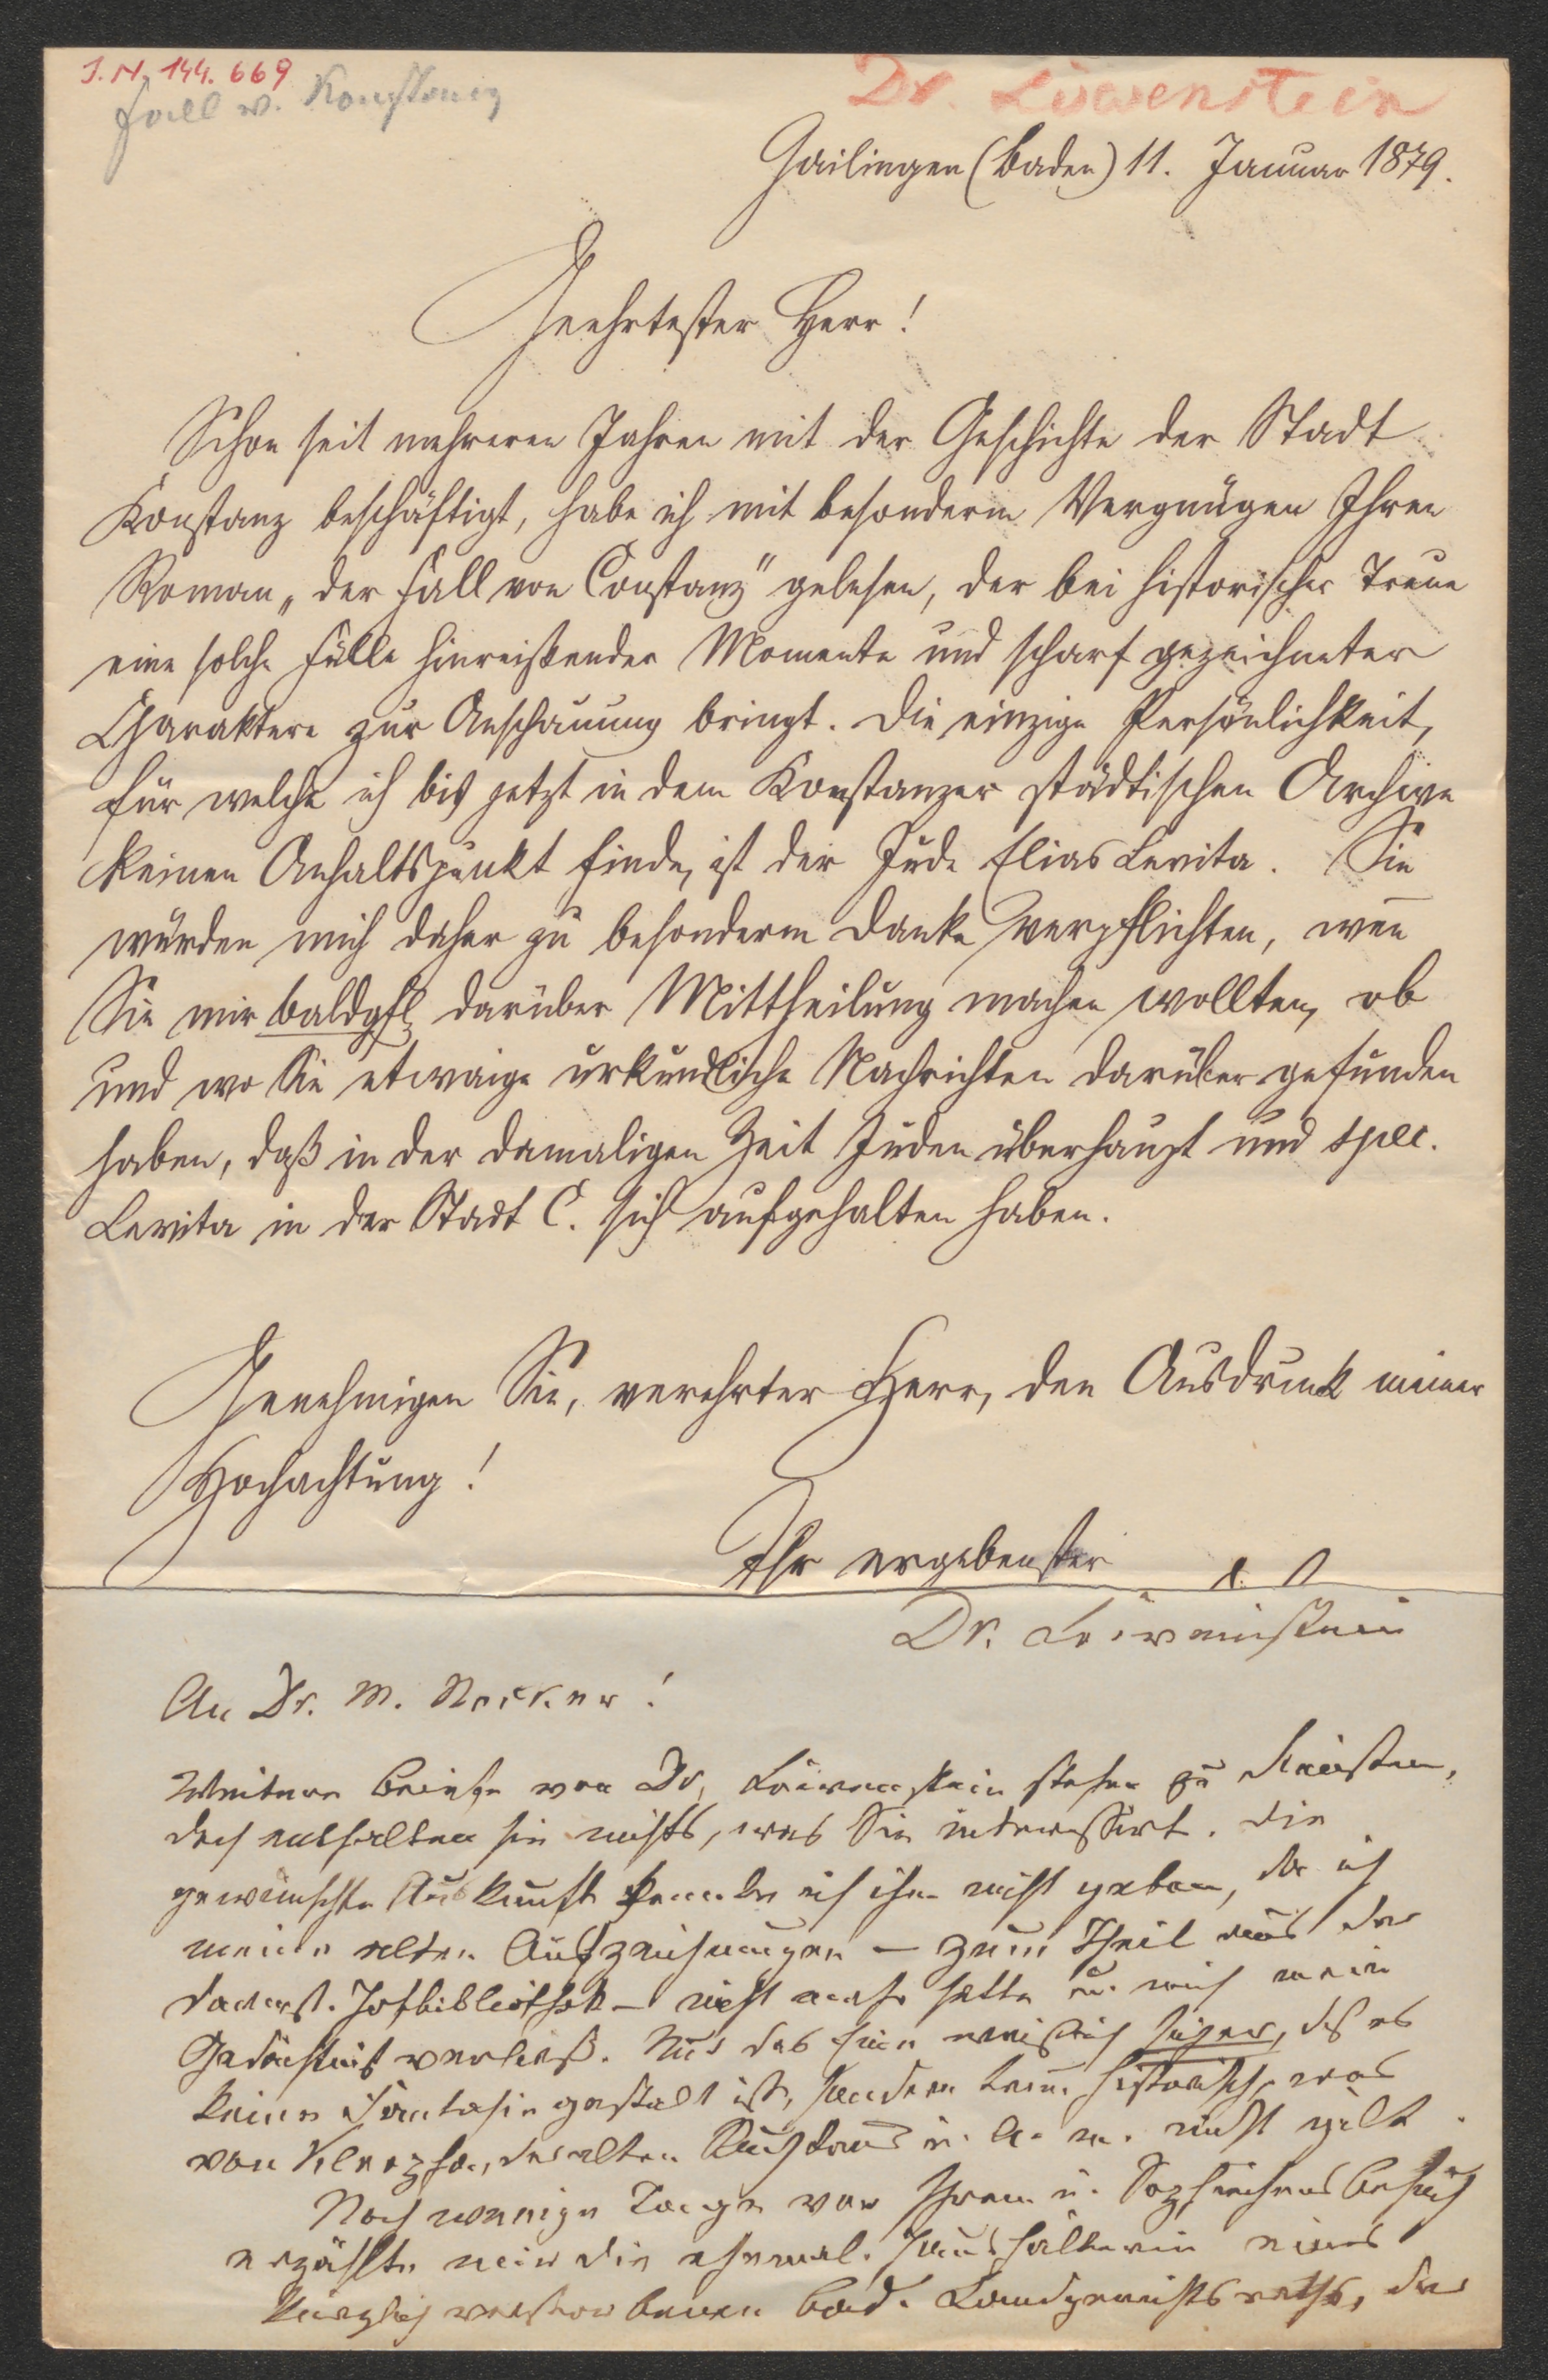 J. N. 144.669
Fall v. Konstanz
Dr. Löwenstein
Gailingen (Baden) 11. Januar 1879.
Geehrtester Herr!
Schon seit mehreren Jahren mit der Geschichte der Stadt
Konstanz beschäftigt, habe ich mit besonderm Vergnügen Ihren
Roman „der Fall von Constanz" gelesen, der bei historischer Treue
eine solche Fülle hinreißender Momente und scharf gezeichneter
Charaktere zur Anschauung bringt. Die einzige Persönlichkeit,
für welche ich bis jetzt in dem Konstanzer städtischen Archive
keinen Anhaltspunkt finde, ist der Jude Elias Levita. Sie
würden mich daher zu besonderm Danke verpflichten, wen̄
Sie mir baldgfl. darüber Mittheilung machen wollten, ob
und wo Sie etwaige urkundliche Nachrichten darüber gefunden
haben, daß in der damaligen Zeit Juden überhaupt und spec.
Levita in der Stadt C. sich aufgehalten haben.
Genehmigen Sie, verehrter Herr, den Ausdruck meiner
Hochachtung!
Ihr ergebenster
Dr. Löwenstein
An Dr. M. Necker!
Weitere Briefe von Dr. Löwenstein stehen zu Diensten,
doch enthalten sie nichts, was Sie interessirt. Die
gewünschte Auskunft konnte ich ihm nicht geben, da ich
meine alten Aufzeichnungen – zum Theil aus der
Hofbibliothek – nicht mehr hatte u. mich mein
Gedächtnis verließ. Nur das Eine weiß ich sicher, daß es
keine Fantasiegestalt ist, sondern historisch, was
von der alten u. A. m. nicht gilt.
Noch wenige Tage vor Ihrem u. Besuch
erzählte mir die ehemal. Haushälterin eines
kürzlich verstorbenen bad. Landgerichtsraths, der